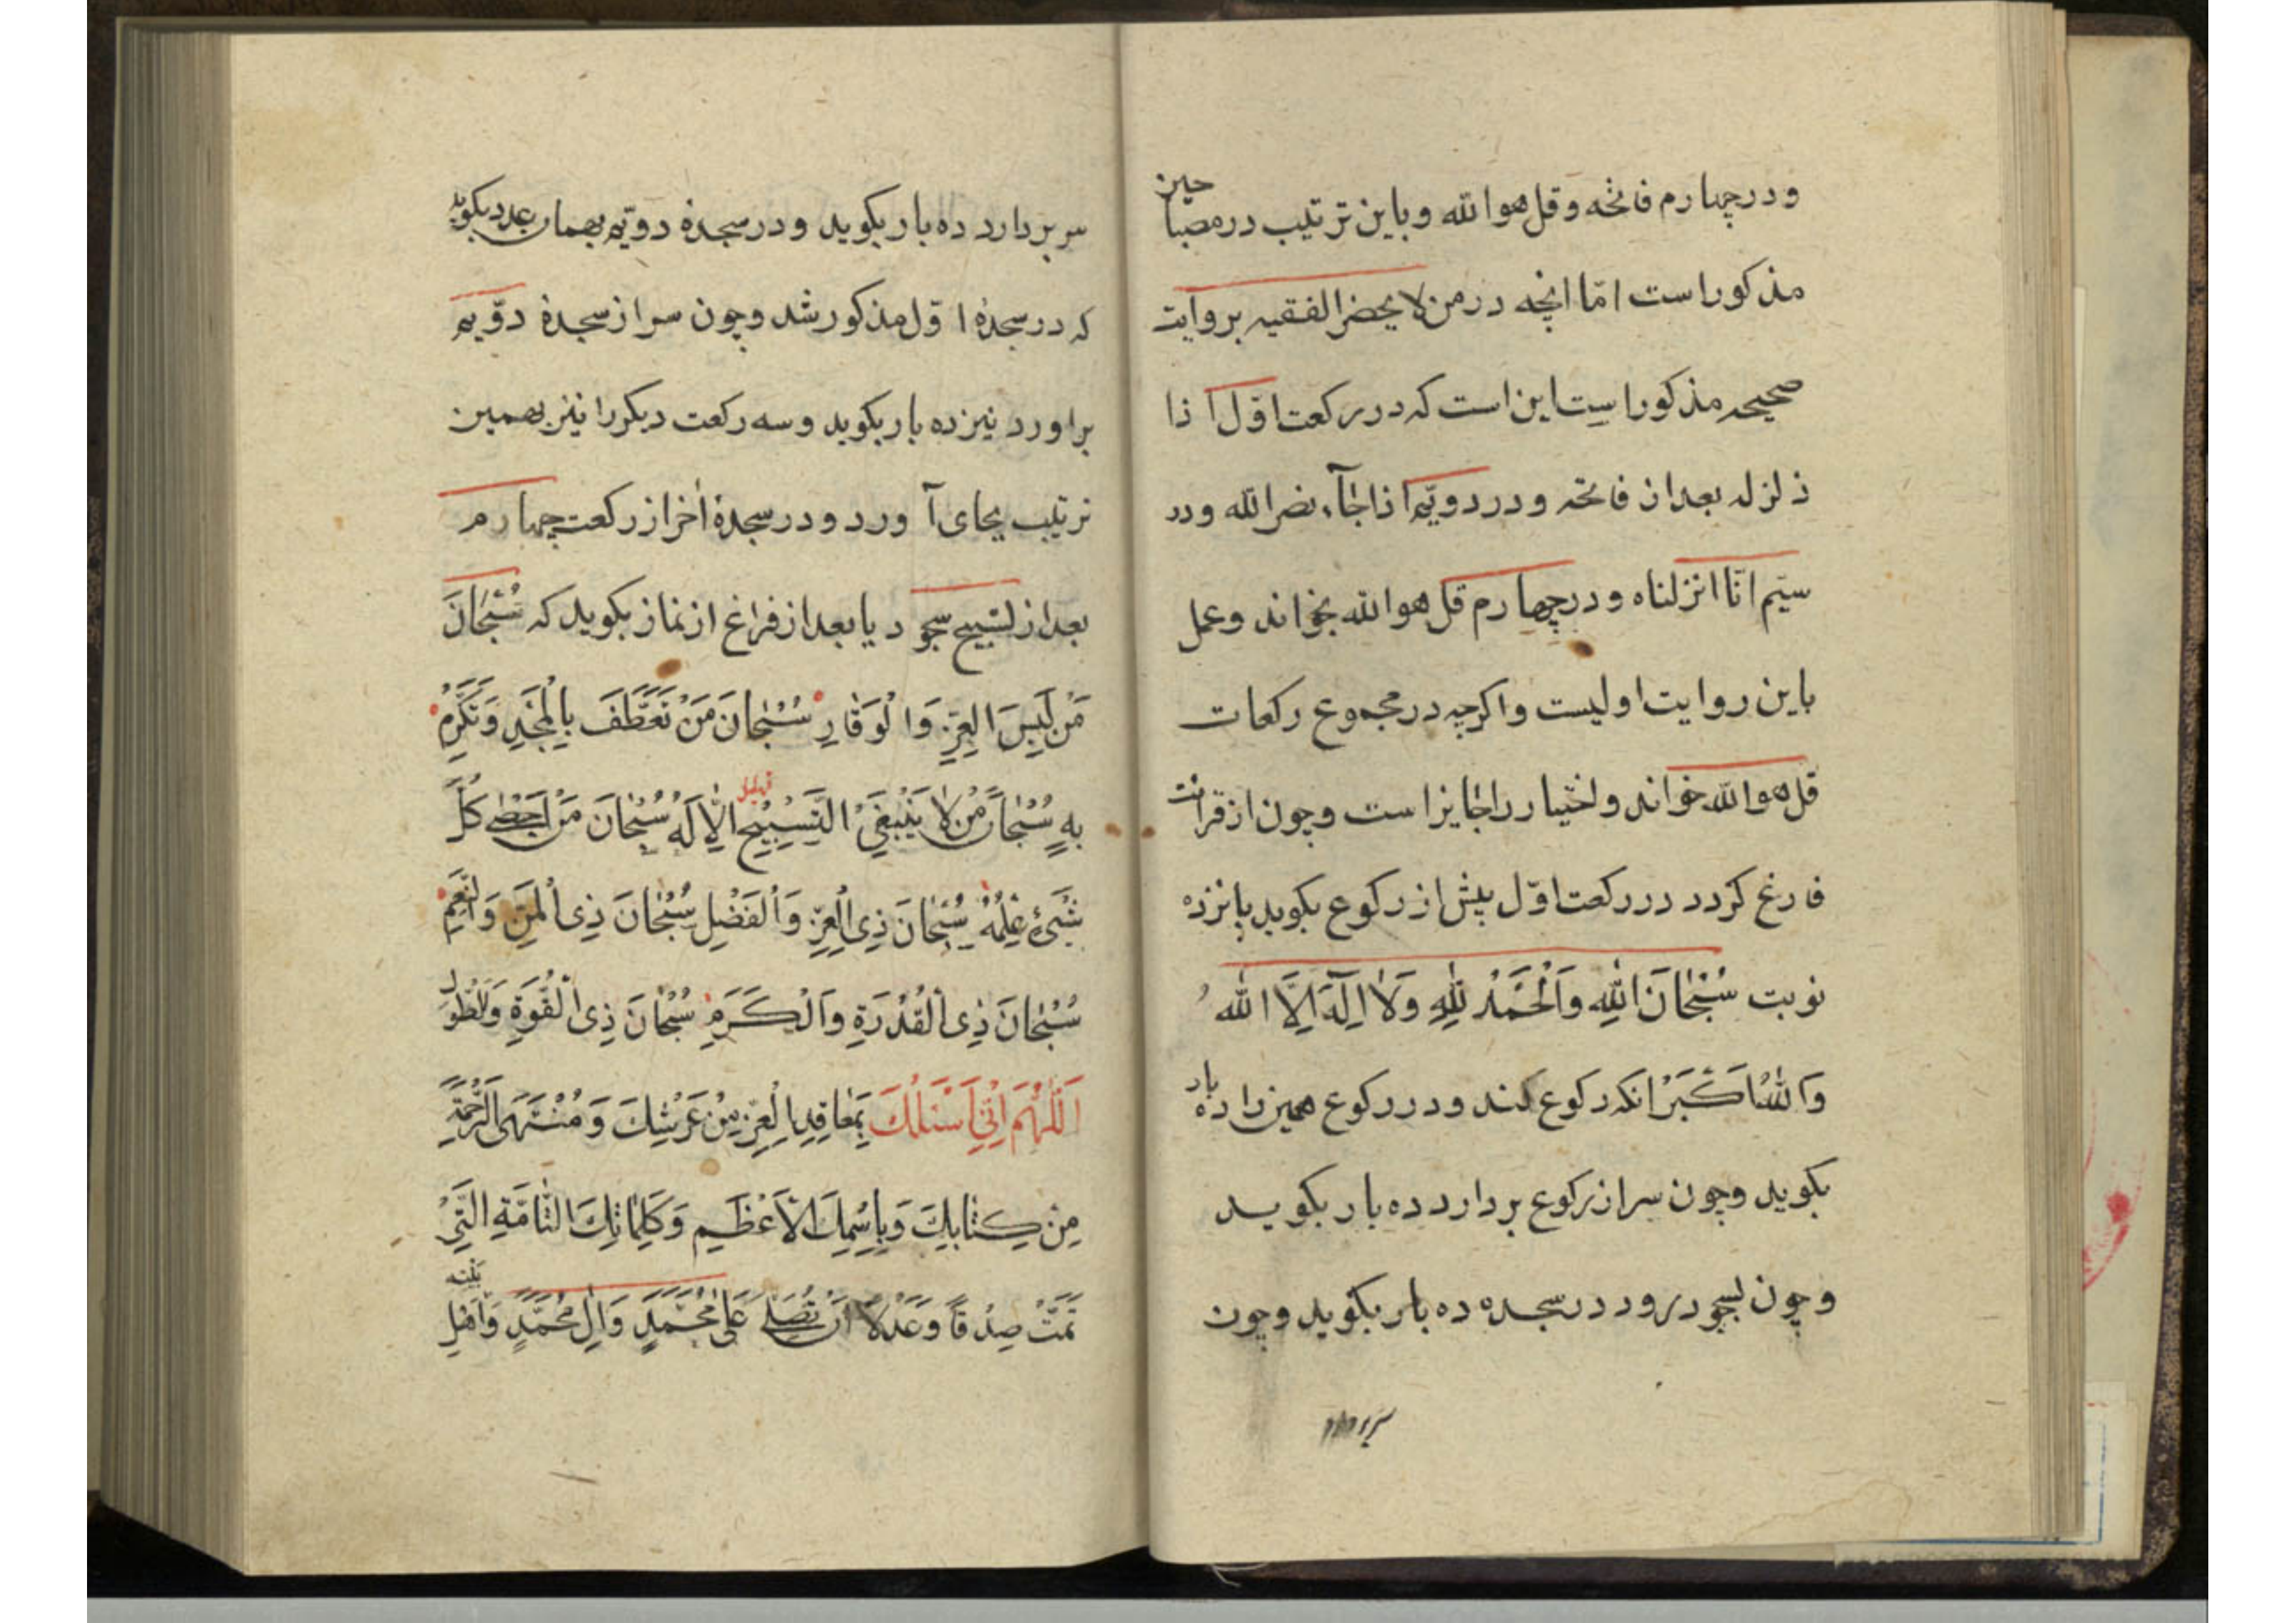 ودر چهارم فاتحه وقل هو الله وباین ترتیب در مصباحین
مذکور است امّا انچه در من لا یحضر الفقیه بروایت
صحیحه مذکور است این است که در رکعت اوّل اذا
زلزله بعد از فاتحه و در دویّم اذا جآء نصر الله ودر
سیّم انّا انزلناه و در چهارم قل هو الله بخواند وعمل
باین روایت اولیست واکرچه در مجموع رکعات
قل هو الله خواند واختیار را جایز است وچون از قرائت
فارغ کردد در رکعت اوّل پیش از رکوع بکوید پانزده
نوبت سُبْحَانَ اللهِ وَالْحَمْدُ لِلّٰهِ وَلَا اِلٓهَ اِلَّا اللهُ
وَاللهُ اَكْبَرْ انکه رکوع کند و در رکوع همین را ده بار
بکوید وچون سر از رکوع بردارد ده بار بکوید
وچون بسجود رود در سجده ده بار بکوید وچون
سر بردارد
سر بردارد ده بار بکوید ودر سجدهٔ دویّم بهمان عدد بکوید
که در سجدهٔ اوّل مذکور شد وچون سر از سجدهٔ دوّیم
براورد نیز ده بار بکوید وسه رکعت دیکر را نیز بهمین
ترتیب بجای آورد ودر سجدهٔ اخر از رکعت چهارم
بعد از تسبیح سجود یا بعد از فراغ از نماز بکوید که سُبْحَانَ
مَنْ لَبِسَ الْعِزَّ وَالْوَقَارِ سُبْحَانَ مَنْ تَعَطَّفَ بِالْمَجْدِ وَتَكَرَّمَ
بِهِ سُبْحَانَ مَنْ لَا يَنْبَغِي التَّسْبِيحُ اِلَّا لَهُ سُبْحَانَ مَنْ اَحْصٰى كُلَّ
شَيْءٍ عِلْمُهُ سُبْحَانَ ذِي الْعِزِّ وَالْفَضْلِ سُبْحَانَ ذِي الْمَنِّ وَالنِّعَمِ
سُبْحَانَ ذِي الْقُدْرَةِ وَالْكَرَمِ سُبْحَانَ ذِي الْقُوَّةِ وَالطَّوْلِ
اَللّٰهُمَّ اِنِّي اَسْئَلُكَ بِمَعَاقِدِ الْعِزِّ مِنْ عَرْشِكَ وَمُنْتَهَى الرَّحْمَةِ
مِنْ كِتَابِكَ وَبِاسْمِكَ الْاَعْظَمِ وَكَلِمَاتِكَ التَّامَّةِ الَّتِيْ
تَمَّتْ صِدْقًا وَعَدْلًا اَنْ تُصَلِّيَ عَلٰى مُحَمَّدٍ وَاٰلِ مُحَمَّدٍ وَاَهْلِ
بَيْتِه